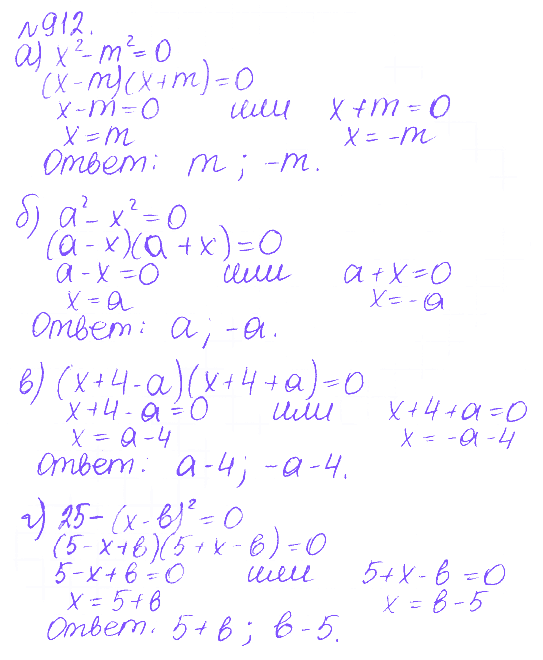 №912.
а) x² - m² = 0
(x-m)(x+m) = 0
x-m=0 или x+m=0
x=m x=-m
Ответ: m; -m.
б) a² - x² = 0
(a-x)(a+x)=0
a-x=0 или a+x=0
x=a x=-a
Ответ: a; -a.
в) (x+4-a)(x+4+a)=0
x+4-a=0 или x+4+a=0
x=a-4 x=-a-4
Ответ: a-4; -a-4.
г) 25-(x-b)²=0
(5-x+b)(5+x-b)=0
5-x+b=0 или 5+x-b=0
x=5+b x=b-5
Ответ: 5+b; b-5.